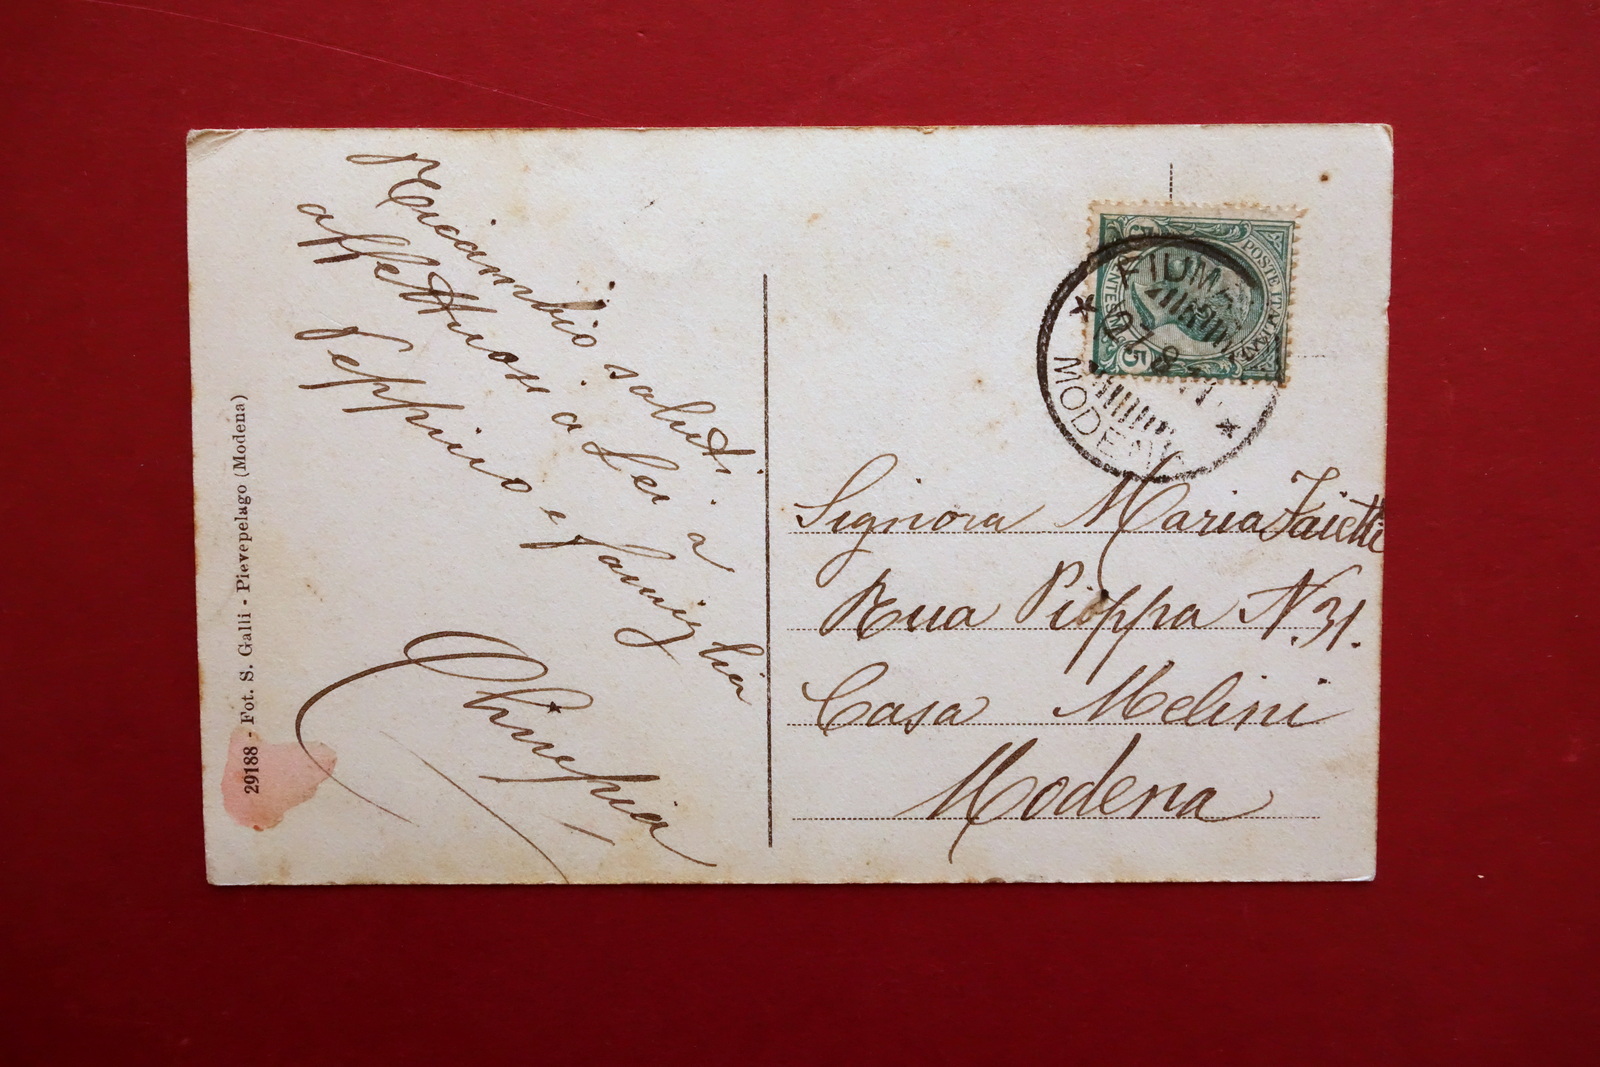 Ricambio saluti
affettuosi a Lei a
Peppino e famiglia
Olimpia
29188 - Fot. S. Galli - Pievepelago (Modena)
POSTE ITALIANE
CENTESIMI 5
MODENA
Signora Maria Zaietti
Rua Pioppa N. 31.
Casa Melini
Modena